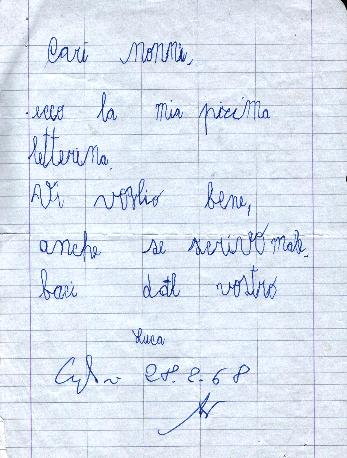 Cari nonni,
ecco la mia picina
letterina.
Vi voglio bene,
anche se scrivo male.
baci dal vostro
Luca
28.2.68